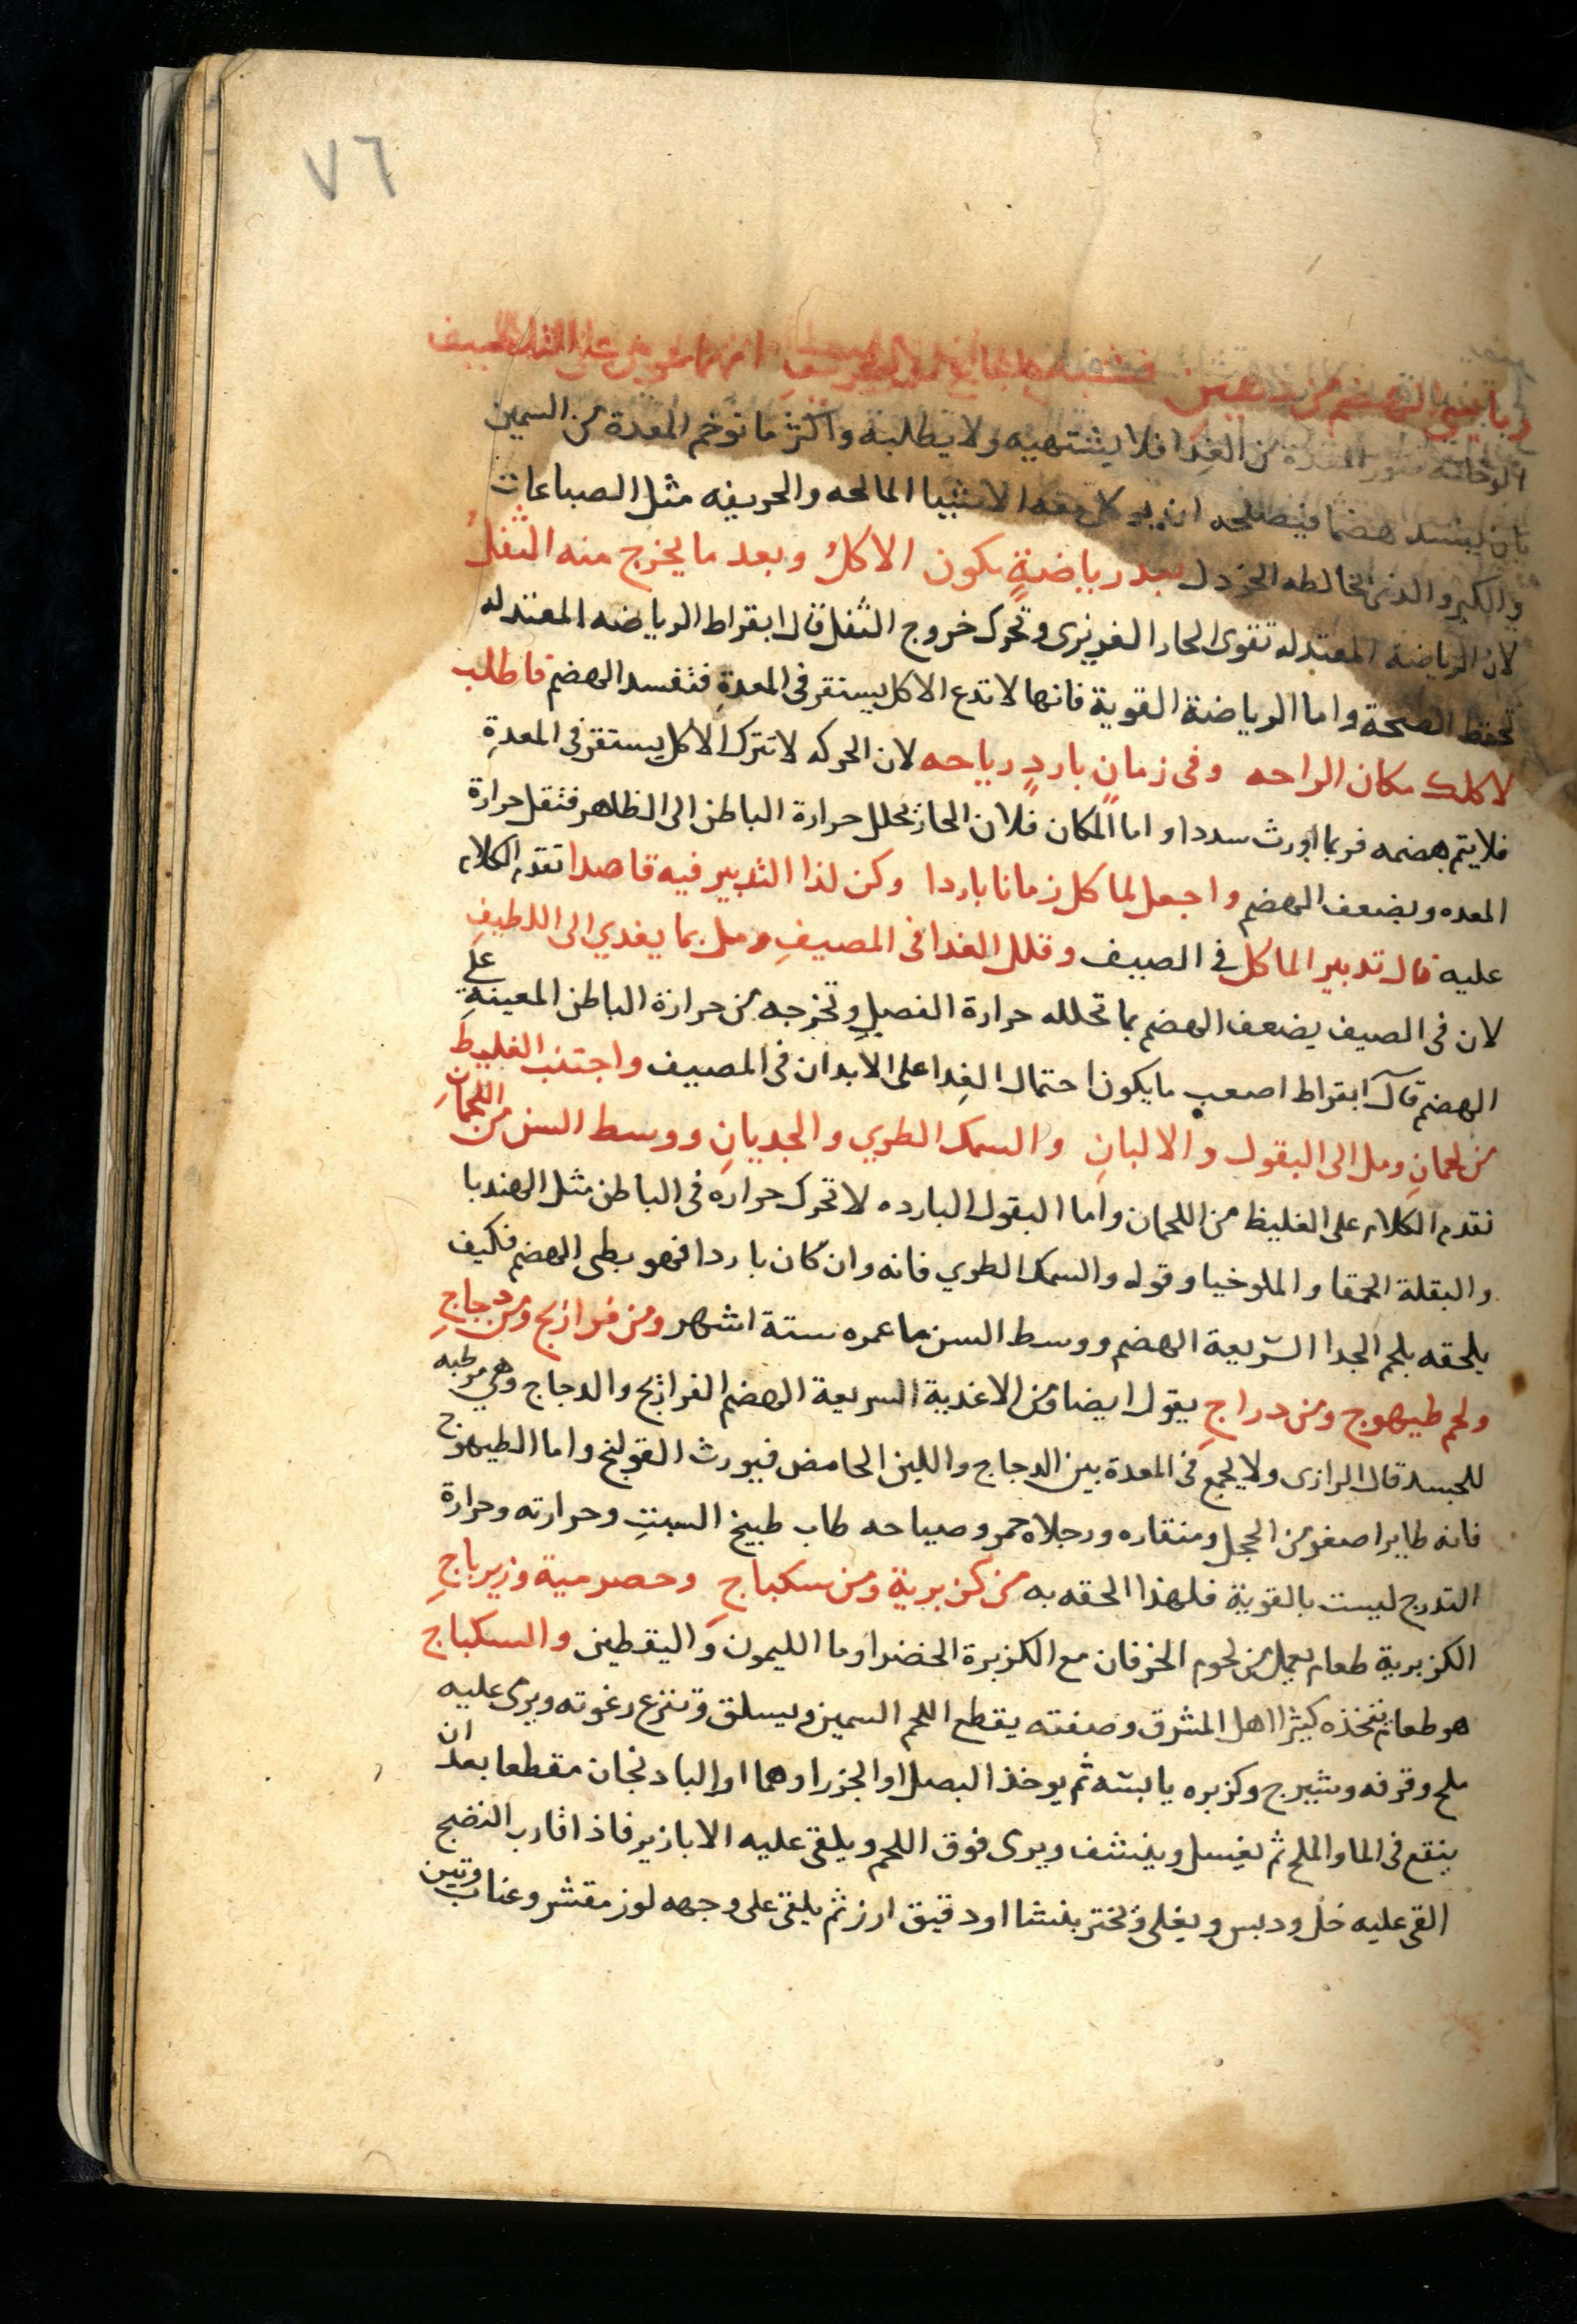 ٧٦
الوخامه نفور المعدة من الغدا فلا يشتهيه ولا يطلبه واكثر ما توخم المعدة من السمين
هضما فيصلحه ان يوكل معه الاشيا المالحه والحريفه مثل الصباغات
والكبر والذى تخالطه الخردل بعد رياضةٍ يكون الاكل وبعد ما يخرج منه الثفل
لان الرياضة المعتدله تقوى الحار الغريزى وتحرك خروج الثفل قال ابقراط الرياضه المعتدله
تحفظ الصحة واما الرياضة القوية فانها لا تدع الاكل يستقر فى المعدةِ فتفسد الهضم فاطلب
لاكلك مكان الراحه وفى زمانٍ باردٍ رياحه لان الحركه لا تترك الاكل يستقر فى المعدةِ
فلا يتم هضمه فربما اورث سددا واما المكان فلان الحار يحلل حرارة الباطن الى الظاهر فتقل حرارة
المعده ويضعف الهضم واجعل لما كل زمانا باردا وكن لذا التدبير فيه قاصدا تقدم الكلام
عليه قال تدبير الماكل فى الصيف وقلل الغدا فى المصيفِ ومل بما يغدي الى اللطيفِ
لان فى الصيف يضعف الهضم بما تحلله حرارة الفصل وتخرجه من حرارة الباطن المعينةِ على
الهضم قال ابقراط اصعب ما يكون احتمال الغِدا على الابدان فى المصيف واجتنب الغليظ
من لحمانِ ومل الى البقول والالبانِ والسمك الطري والجديانِ ووسط السن من اللحمانِ
تقدم الكلام على الغليظ من اللحمان واما البقول البارده لا تحرك حراره فى الباطن مثل الهندبا
والبقلة الحمقا والملوخيا وقوله والسمك الطري فانه وان كان باردا فهو بطى الهضم فكيف
يلحقه بلحم الجدا السريعة الهضم ووسط السن ما عمره ستة اشهر ومن فراريج ومن دجاجِ
ولحم طيهوج ومن دراجِ يقول ايضا ومن الاغدية السريعة الهضم الفراريج والدجاج وهي مرطبه
للجسد قال الرازى ولا يجمع فى المعدة بين الدجاج واللبن الحامض فيورث القولنج واما الطيهوج
فانه طايرا صغر من الحجل ومنقاره ورجلاه حمر وصياحه طاب طبيخ السبتِ وحرارته وحرارة
التدرج ليست بالقوية فلهذا الحقه به من كزبرية ومن سكباجِ وحصرمية وزيرباجِ
الكزبرية طعام يعمل من لحوم الخرفان مع الكزبرة الخضرا وما الليمون واليقطين والسكباج
هو طعام تتخذه كثيرا اهل المشرق وصفته يقطع اللحم السمين ويسلق وتنزع رغوته ويرمى عليه
ملح وقرفه وشيرج وكزبره يابسه ثم يوخذ البصل او الجزر او هما او البادنجان مقطعا بعد ان
ينقع فى الما والملح ثم يغسل وينشف ويرمى فوق اللحم ويلقى عليه الابازير فاذا قارب النضج
القى عليه خل ودبس ويغلى وتختر بنشا او دقيق ارز ثم يلقى على وجهه لوز مقشر وعناب وتين